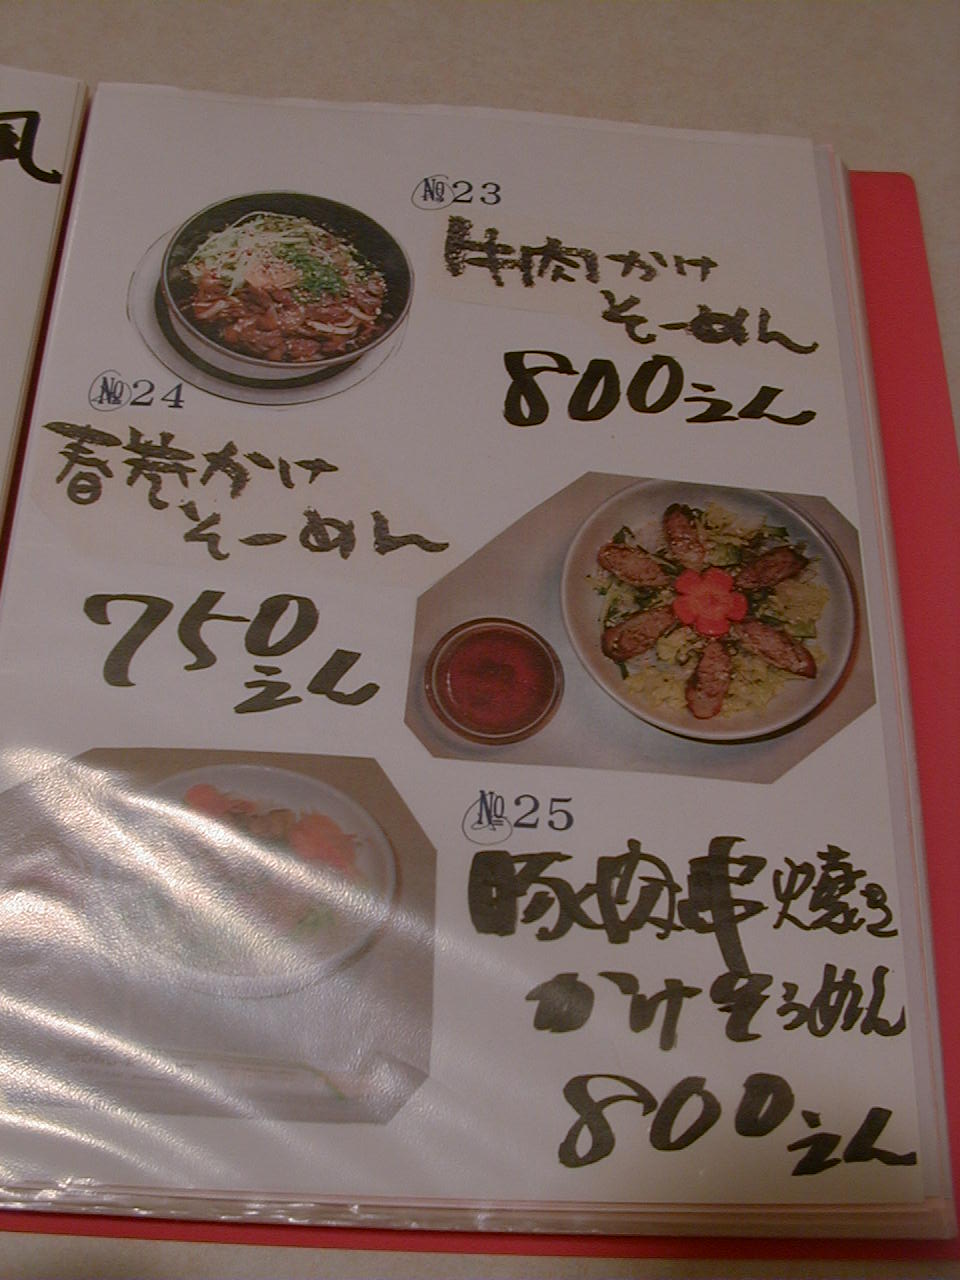 風
№23
牛肉かけ
そーめん
800えん
№24
春巻かけ
そーめん
750えん
№25
豚肉串焼き
かけそうめん
800えん